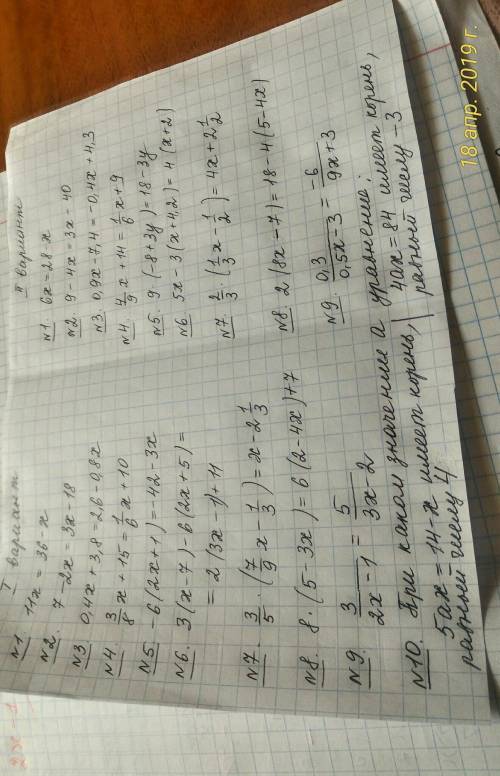 I вариант
№1 11x = 36 - x
№2. 7 - 2x = 3x - 18
№3. 0,4x + 3,8 = 2,6 - 0,8x
№4. 3/8 x + 15 = 1/6 x + 10
№5. -6(2x+1) = -42 - 3x
№6. 3(x-7) - 6(2x+5) =
= 2(3x-1) + 11
№7. 3/5 · (7/9 x - 1/3) = x - 2 1/3
№8. 8·(5-3x) = 6(2-4x)+7
№9. 3/(2x-1) = 5/(3x-2)
II вариант
№1. 6x = 28 - x
№2. 9 - 4x = 3x - 40
№3. 0,9x - 7,4 = -0,4x + 4,3
№4. 4/9 x + 14 = 1/6 x + 9
№5. 9·(-8+3y) = 18 - 3y
№6. 5x - 3(x+4,2) = 4(x+2)
№7. 2/3 · (1/3 x - 1/2) = 4x + 2 1/2
№8. 2(8x-7) = 18 - 4(5-4x)
№9. 0,3/(0,5x-3) = -6/(9x+3)
№10. При каком значение a уравнение:
5ax = 14 - x имеет корень,
равный числу 4
4ax = 84 имеет корень,
равный числу -3
18 апр. 2019 г.